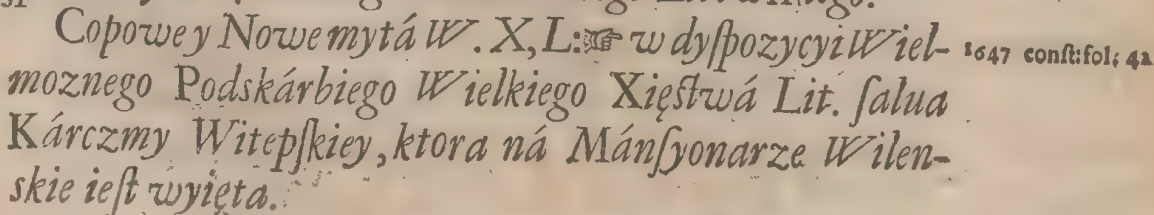 Copowe y Nowe mytá W. X, L:☞ w dyſpozycyi Wiel-
1647 conſt: fol; 42
moznego Podskárbiego Wielkiego Xięſtwá Lit. ſalua
Kárczmy Witepſkiey, ktora ná Mánſyonarze Wilen-
skie ieſt wyięta.